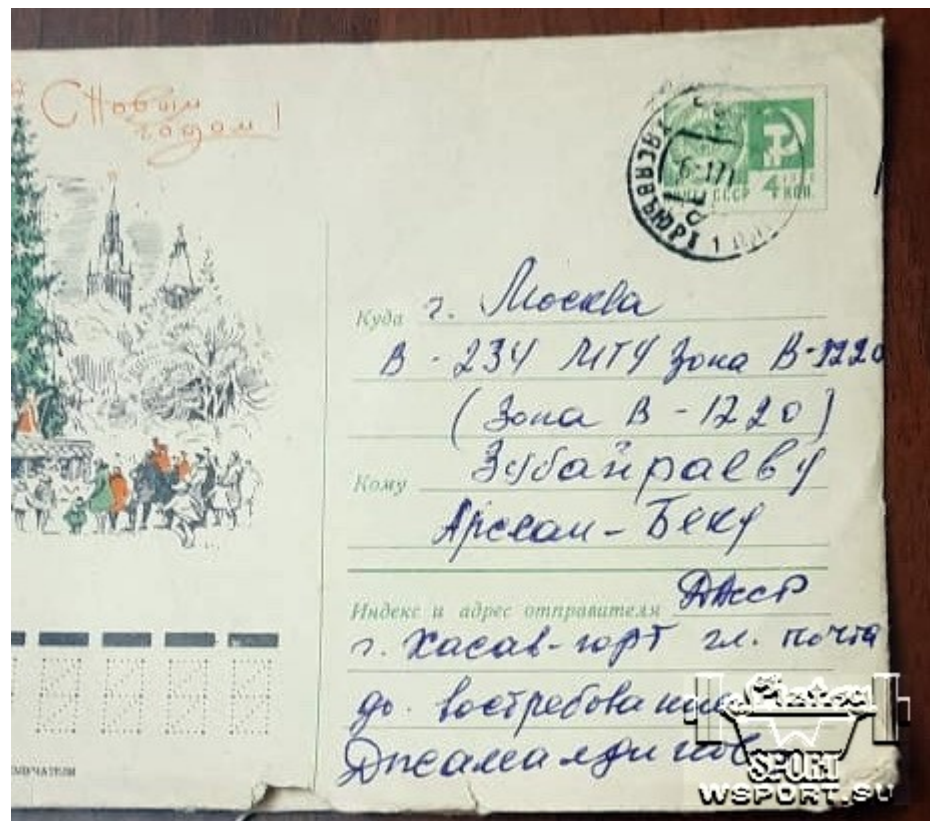 С Новым
годом!
ХАСАВЪЮРТ 1
ПОЧТА СССР 4 КОП.
Куда г. Москва
В-234 МГУ Зона В-1220
(Зона В-1220)
Кому Зубайраеву
Арслан-Беку
Индекс и адрес отправителя ДАССР
г. Хасав-юрт гл. почта
до востребования
Джамалдинов
SPORT
WSPORT.SU